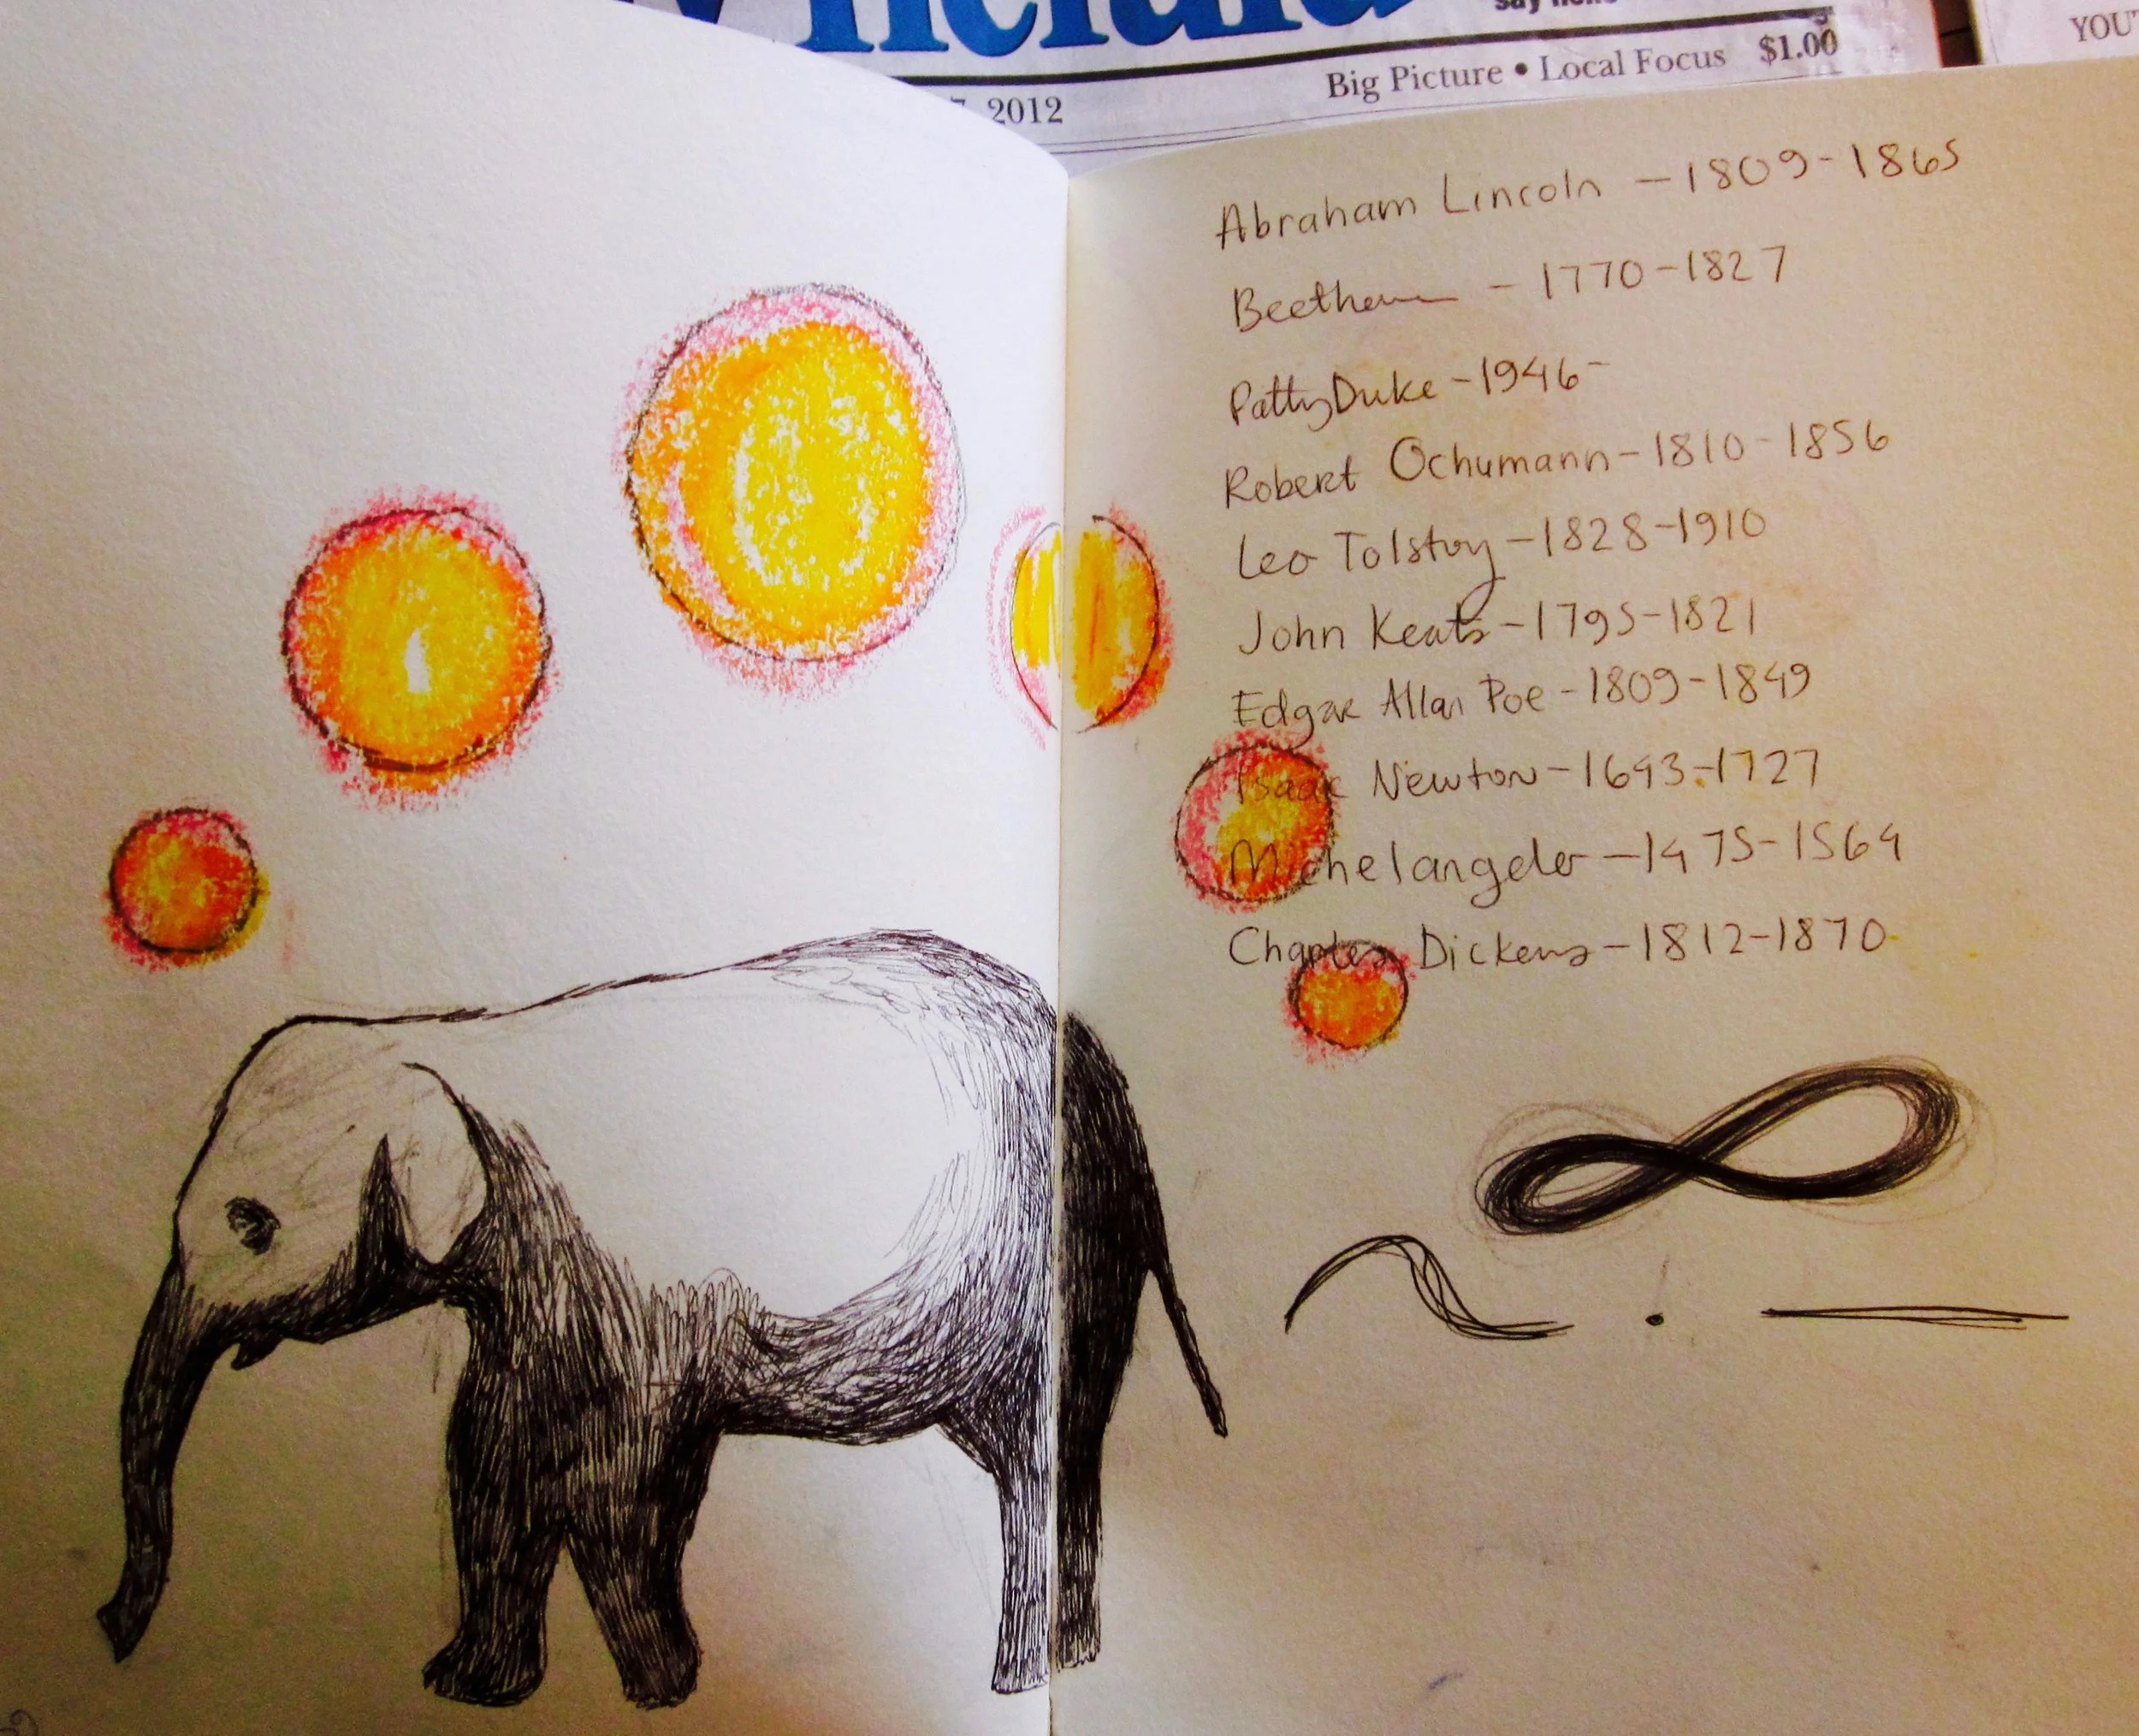 Herald
Big Picture • Local Focus $1.00
2012
YOU
Abraham Lincoln - 1809-1865
Beethoven - 1770-1827
Patty Duke - 1946-
Robert Ochumann - 1810-1856
Leo Tolstoy - 1828-1910
John Keats - 1795-1821
Edgar Allan Poe - 1809-1849
Isaac Newton - 1643-1727
Michelangelo - 1475-1564
Charles Dickens - 1812-1870